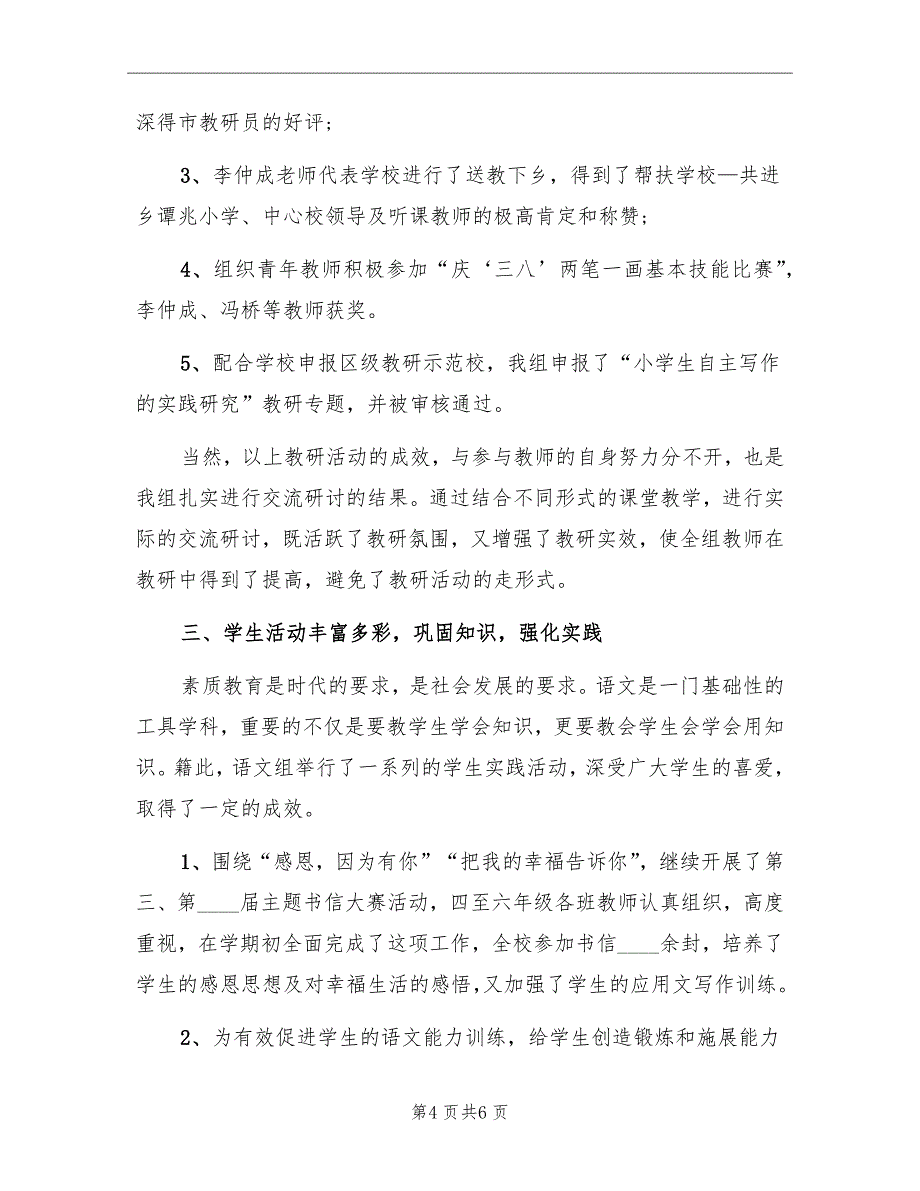 深得市教研员的好评;
3、李仲成老师代表学校进行了送教下乡，得到了帮扶学校—共进
乡谭兆小学、中心校领导及听课教师的极高肯定和称赞;
4、组织青年教师积极参加“庆‘三八’两笔一画基本技能比赛”，
李仲成、冯桥等教师获奖。
5、配合学校申报区级教研示范校，我组申报了“小学生自主写作
的实践研究”教研专题，并被审核通过。
当然，以上教研活动的成效，与参与教师的自身努力分不开，也是
我组扎实进行交流研讨的结果。通过结合不同形式的课堂教学，进行实
际的交流研讨，既活跃了教研氛围，又增强了教研实效，使全组教师在
教研中得到了提高，避免了教研活动的走形式。
三、学生活动丰富多彩，巩固知识，强化实践
素质教育是时代的要求，是社会发展的要求。语文是一门基础性的
工具学科，重要的不仅是要教学生学会知识，更要教会学生会学会用知
识。籍此，语文组举行了一系列的学生实践活动，深受广大学生的喜爱，
取得了一定的成效。
1、围绕“感恩，因为有你”“把我的幸福告诉你”，继续开展了第
三、第____届主题书信大赛活动，四至六年级各班教师认真组织，高度
重视，在学期初全面完成了这项工作，全校参加书信____余封，培养了
学生的感恩思想及对幸福生活的感悟，又加强了学生的应用文写作训练。
2、为有效促进学生的语文能力训练，给学生创造锻炼和施展能力
第4 页共6 页